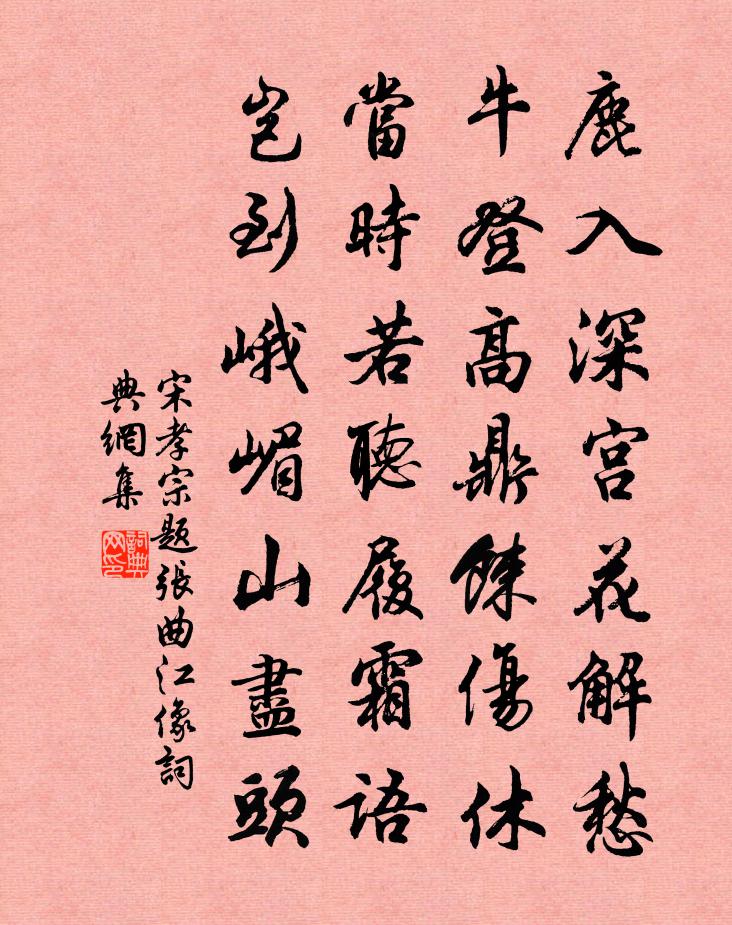 鹿入深宫花解愁
牛登高鼎餗傷休
當時若聽履霜語
豈到峨嵋山盡頭
宋孝宗題張曲江像詞
典網集
詞典网印